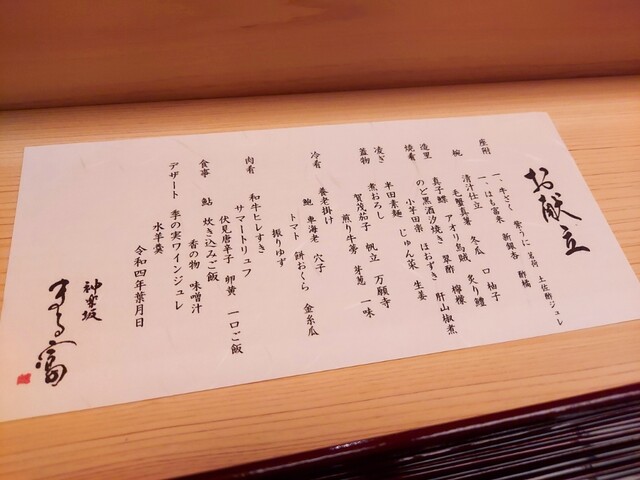 お献立
座附
一、牛ざく 紫うに 茗荷 土佐酢ジュレ
一、はも冨来 新銀杏 酢橘
椀
清汁仕立
毛蟹真薯 冬瓜 口 柚子
造里
真子鰈 アオリ烏賊 炙り鱧
翠酢 檸檬 肝山椒煮
焼肴
のど黒酒汐焼き
小芋田楽 ほおずき
凌ぎ
半田素麺 じゅん菜 生姜
蓋物
煮おろし 帆立 万願寺
賀茂茄子
煎り牛蒡 芽葱 一味
冷肴
養老掛け
鮑 車海老 穴子
トマト 餅おくら 金糸瓜
振りゆず
肉肴
和牛ヒレすき
サマートリュフ
伏見唐辛子 卵黄 一口ご飯
食事
鮎 炊き込みご飯
香の物 味噌汁
デザート 季の実ワインジュレ
水羊羹
令和四年葉月日
神楽坂
まる富